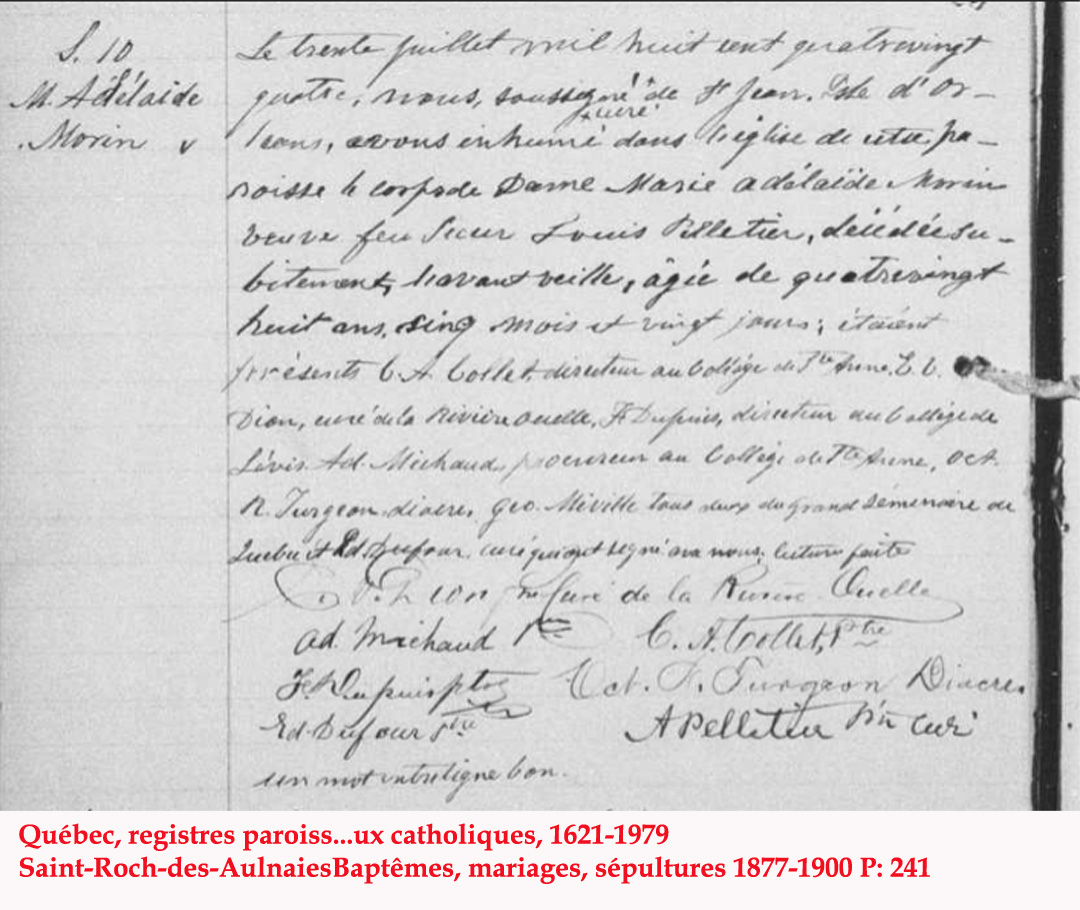 S. 10
M. Adélaide
Morin
Le trente juillet mil huit cent quatrevingt
quatre, nous, soussigné de St Jean, Isle d'Or-
curé
leans, avons inhumé dans l'église de cette pa-
roisse le corps de Dame Marie adélaïde Morin
veuve feu Sieur Louis Pelletier, décédée su-
bitement, l'avant veille, âgée de quatrevingt
huit ans, sinq mois et vingt jours; étaient
présents C. A. Collet, directeur au Collége de Ste Anne, E. C.
Dion, curé de la Rivière ouelle, F. Dupuis, directeur au Collége de
Lévis, Ad. Michaud, procureur au Collége de Ste Anne, Oct.
R. Turgeon, diacre, Geo. Miville tous deux du Grand Séminaire de
Quebec et Ed. Dufour, curé qui ont signé avec nous. lecture faite
Dion ptre Curé de la Rivière Ouelle
Ad. Michaud Ptre
C. A. Collet, Ptre
F. Dupuis ptre
Oct. R. Turgeon Diacre.
Ed. Dufour Ptre
A Pelletier Ptr Curé
un mot entreligne bon.
Québec, registres paroiss...ux catholiques, 1621-1979
Saint-Roch-des-AulnaiesBaptêmes, mariages, sépultures 1877-1900 P: 241